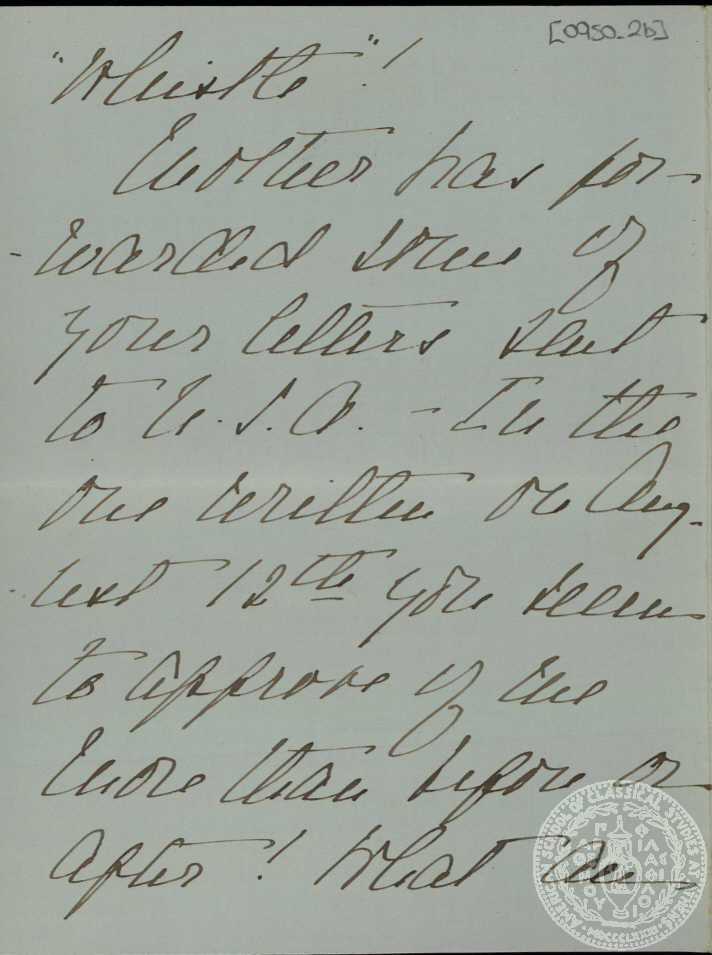 [0950_2b]
"Whistle"!
Mother has for-
-warded some of
your letters sent
to U.S.A. - In the
one written on Aug-
-ust 12th you seem
to approve of me
more than before or
after! What
AMERICAN SCHOOL OF CLASSICAL STUDIES AT ATHENS
MDCCCLXXXI